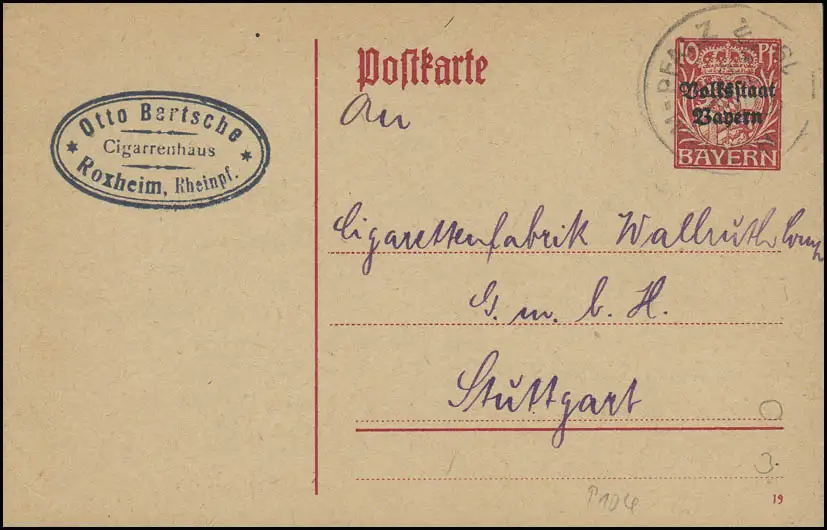 Otto Bertsche
Cigarrenhaus
Roxheim, Rheinpf.
Postkarte
10 Pf.
Volksstaat
Bayern
BAYERN
An
Cigarettenfabrik Wallruth Comp
G. m. b. H.
Stuttgart
3.
P104
19